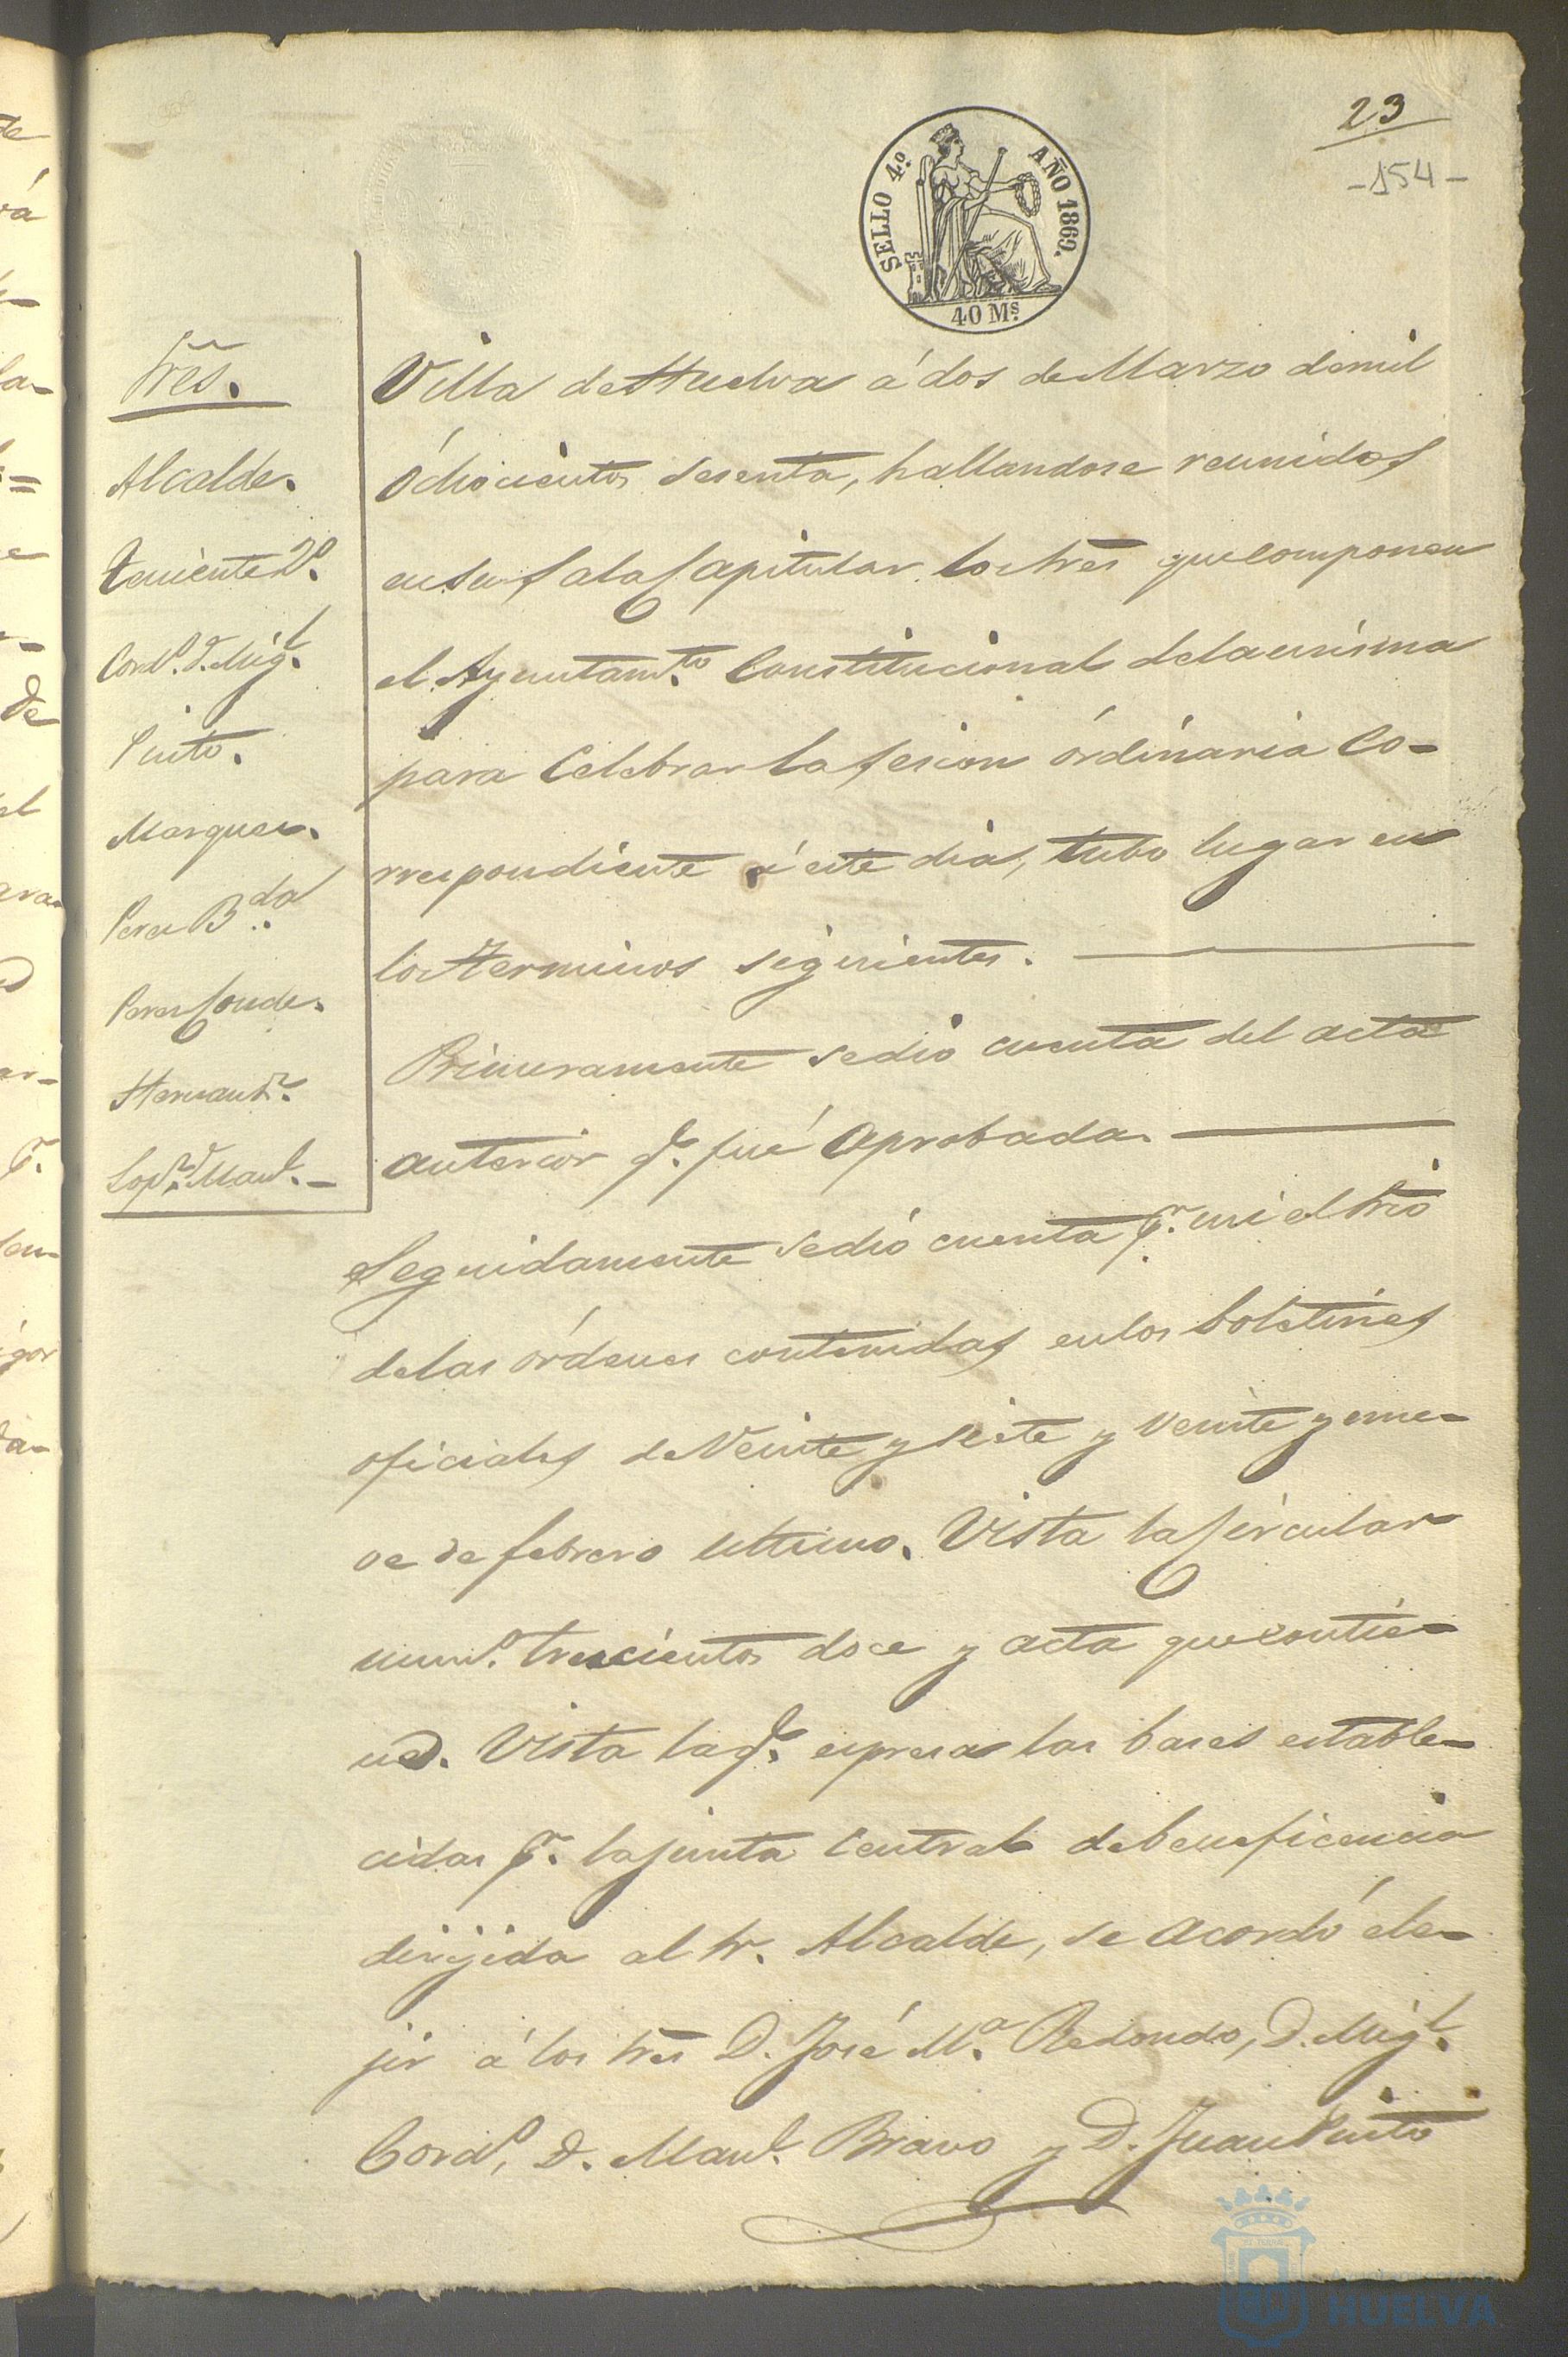 23
-154-
SELLO 4º. AÑO 1860.
40 Ms.
Sres.
Alcalde.
Teniente 2º.
Cordº. D. Migl.
Pinto.
Marquez.
Perez Bdo.
Perez Conde.
Hernandz.
Lopz. D. Manl.
Villa de Huelva á dos de Marzo de mil
óchocientos sesenta, hallandose reunidos
en su Sala Capitular los Sres que componen
el Ayuntamto. Constitucional de la misma
para Celebrar la sesion órdinaria Co-
rrespondiente á este dia, tubo lugar en
los terminos siguientes.
Primeramente se dió cuenta del acta
anterior q. fué aprobada.
Seguidamente se dió cuenta pr. mi el Srio
de las órdenes contenidas en los boletines
oficiales de Veinte y siete y veinte y nue-
ve de febrero ultimo. Vista la Circular
numº. trescientos doce y acta que contie-
ne. Vista la q. espresa las bases estable-
cidas pr. la junta Central de beneficencia
dirijida al Sr. Alcalde, se acordó ele-
jir á los Sres D. José Ma. Redondo, D. Migl.
Cordº, D. Manl. Bravo y D. Juan Pinto
HUELVA